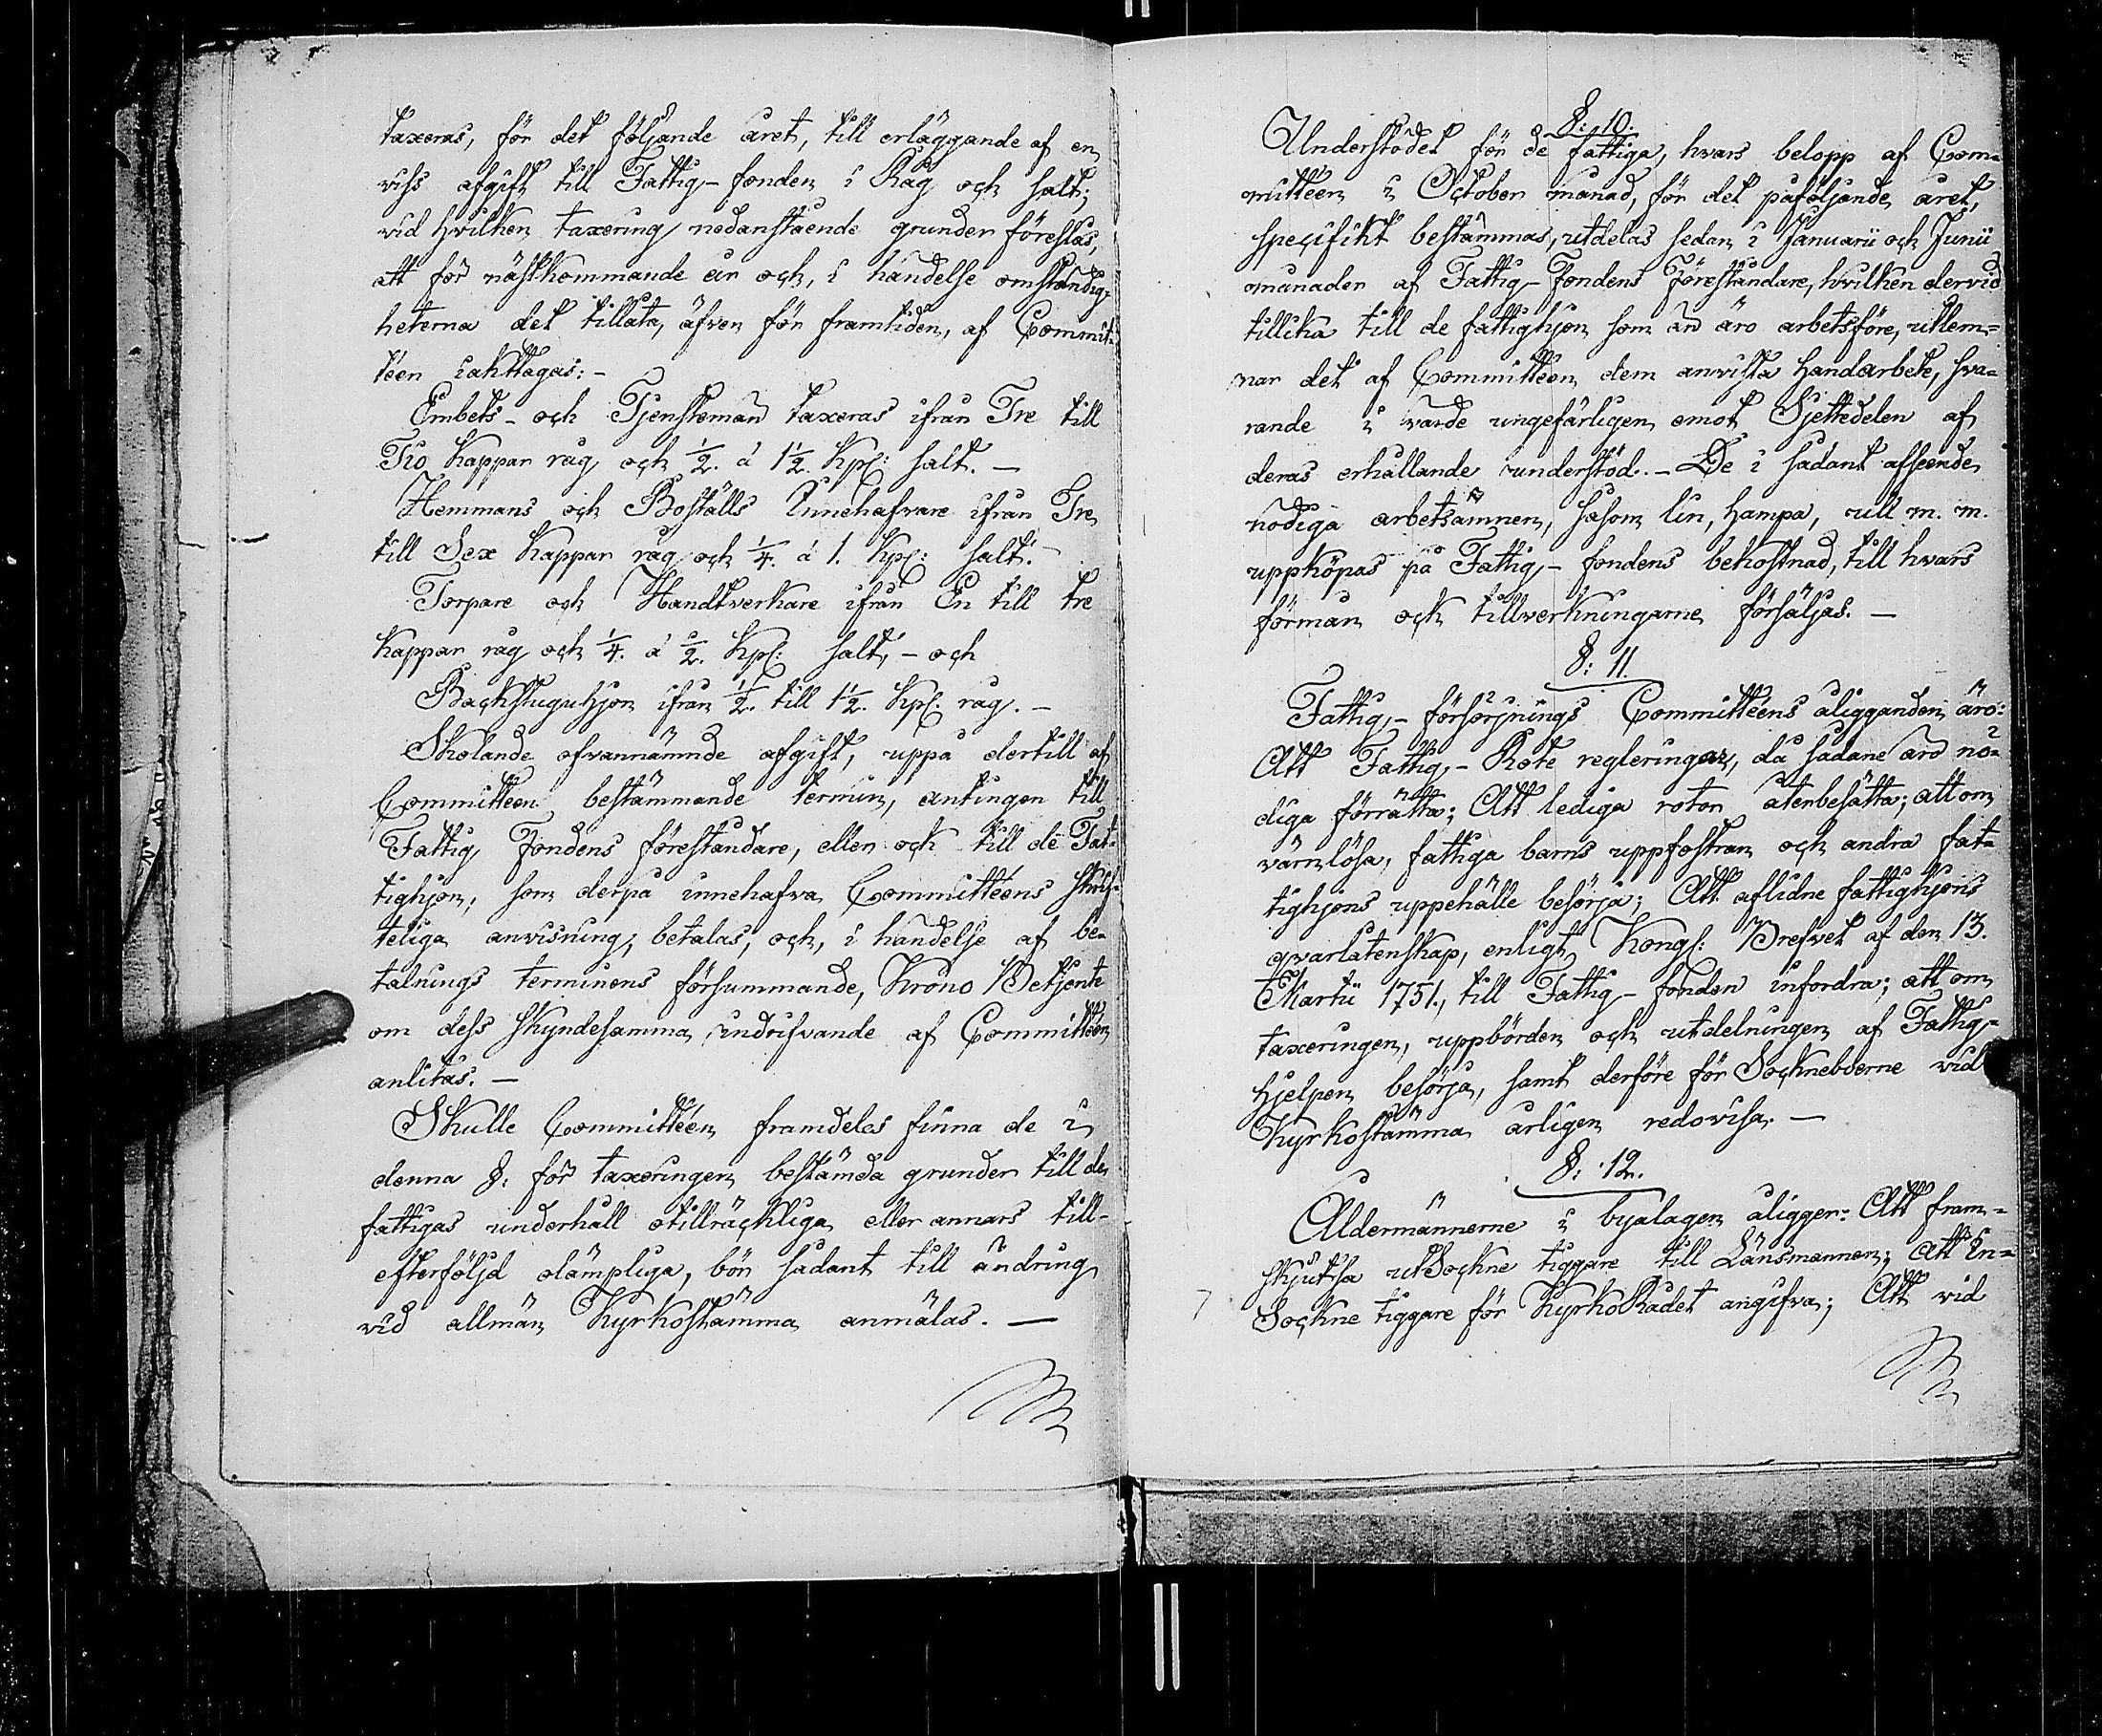 taxeras, för det följande året, till erläggande af en
viss afgift till Fattig-fonden i Råg och salt;
vid hvilken taxering nedanstående grunder föreslås,
att för nästkommande år och, i händelse omständig-
heterna det tillåta, äfven för framtiden, af Commit-
téen iakttagas:-
Embets- och Tjensteman taxeras ifrån Tre till
Tio kappar råg och ½. á 1½. Kpr: salt. —
Hemmans och Boställs Innehafvare ifrån Tre
till Sex kappar råg och ¼. á 1. Kpr: salt. —
Torpare och Handtverkare ifrån En till tre
kappar råg och ¼. á ½. Kpr: salt, - och
Backstuguhjon ifrån ½. till 1½. Kpr. råg. —
Skolande ofvannämnde afgift, uppå dertill af
Committeen bestämmande termin, antingen till
Fattig Fondens föreståndare, eller och till de Fat-
tighjon, som derpå innehafva Committéens skrif-
teliga anvisning, betalas, och, i händelse af be-
talnings terminens försummande, Krono Betjente
om dess skyndesamma indrifvande af Committéen
anlitas. —
Skulle Committéen framdeles finna de i
denna §: för taxeringen bestämda grunder till de
fattigas underhåll otillräckliga eller annars till-
efterföljd olämpliga, bör sådant till ändring
vid allmän Kyrkostämma anmälas. —
§: 10:
Understödet för de fattiga, hvars belopp af Com-
mittéen i October månad, för det påföljande året,
specifikt bestämmas, utdelas sedan i Januarii och Junii
månader af Fattig-Fondens Föreståndare, hvilken dervid
tillika till de fattighjon som än äro arbetsföre, utlem-
nar det af Committéen dem anvista Handarbete, sva-
rande i värde ungefärligen emot Sjettedelen af
deras erhållande understöd. - De i sådant afseende
nödiga arbetsämnen, såsom lin, hampa, ull m. m.
uppköpas på Fattig-fondens bekostnad, till hvars
förmån och tillverkningarne försäljas. —
§: 11.
Fattig-försörjnings Committéens åligganden äro:
Att Fattig-Rote regleringar, då sådane äro nö-
diga förrätta; Att lediga rotor återbesätta; att om
värnlösa, fattiga barns uppfostran och andra fat-
tighjons uppehälle besörja; Att aflidne fattighjons
qvarlåtenskap, enligt Kongl: Brefvet af den 13.
Martii 1751., till Fattig-fonden infordra; att om
taxeringen, uppbörden och utdelningen af Fattig-
hjelpen besörja, samt derföre för Sockneboerne vid
Kyrkostämma årligen redovisa. —
§: 12.
Åldermännerne i byalagen åligger: Att fram-
skjutsa utSockne tiggare till Länsmannen; Att In-
Sockne tiggare för KyrkoRådet angifva; Att vid